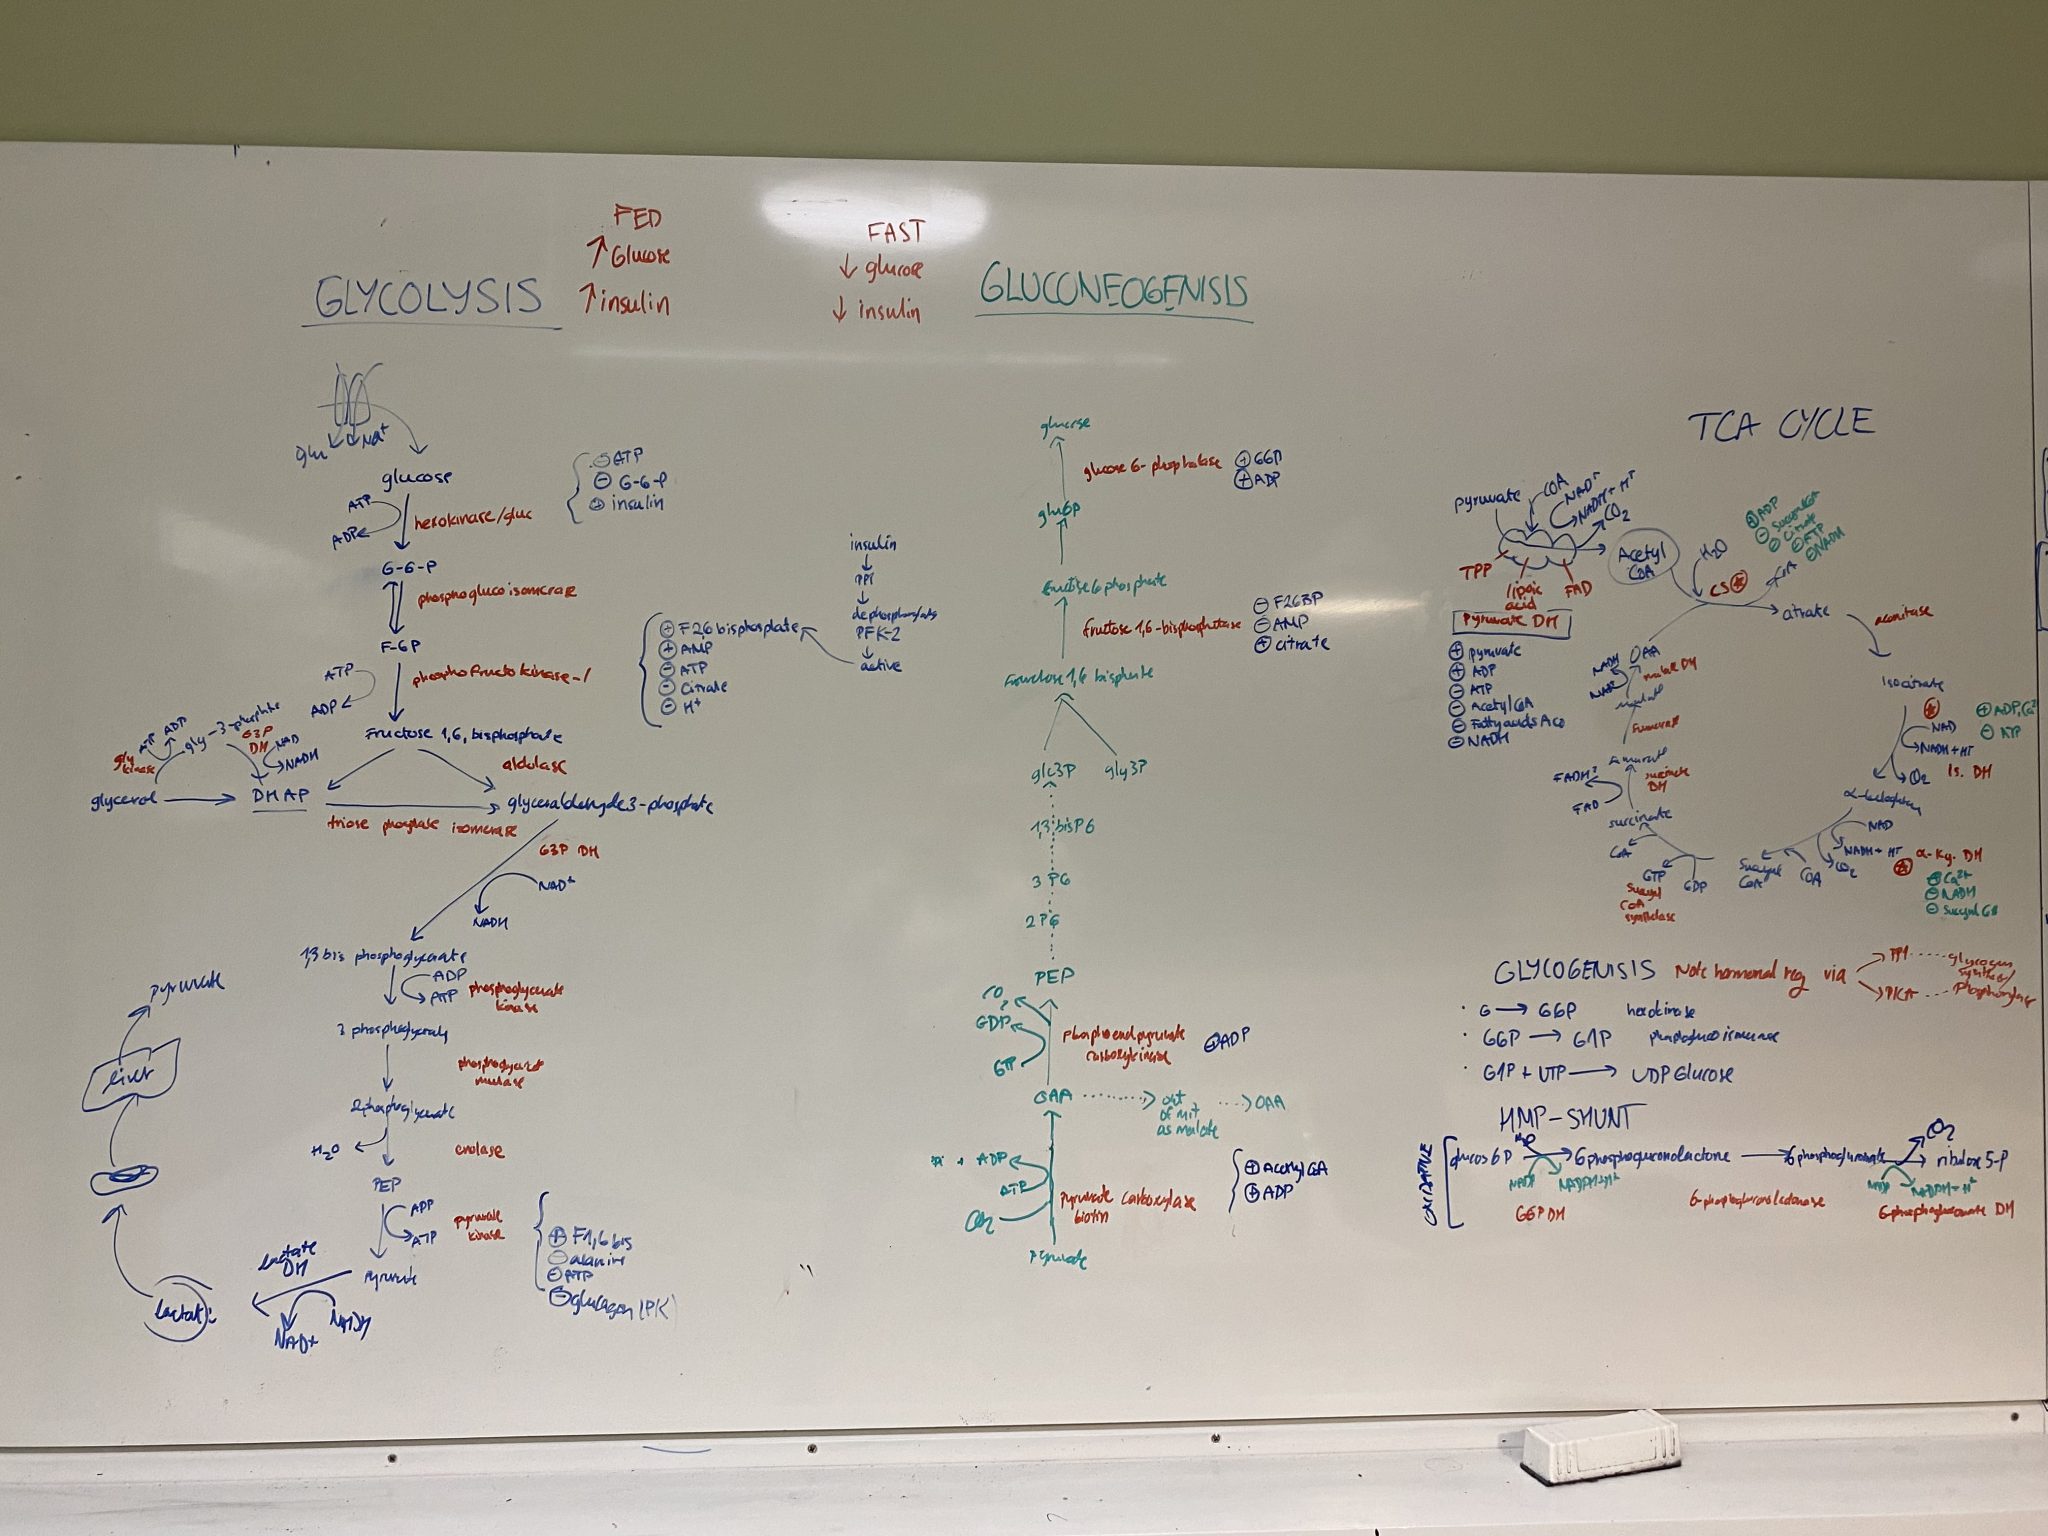 FED
↑ Glucose
↑ insulin
FAST
↓ glucose
↓ insulin
GLYCOLYSIS
glu
Na+
glucose
ATP
ADP
hexokinase/gluc
⊖ ATP
⊖ G-6-P
⊕ insulin
G-6-P
phosphoglucoisomerase
F-6P
ATP
ADP
phosphofructokinase-1
⊕ F2,6 bisphosphate
⊕ AMP
⊖ ATP
⊖ Citrate
⊖ H+
insulin
PP1
PFK-2
active
Fructose 1,6, bisphosphate
aldolase
gly-3-phosphate
ATP
ADP
gly
kinase
G3P
DH
NAD
NADH
glycerol
DHAP
glyceraldehyde 3-phosphate
triose phosphate isomerase
G3P DH
NAD+
NADH
1,3 bis phosphoglycerate
ADP
ATP
phosphoglycerate
kinase
3 phosphoglycerate
phosphoglycerate
mutase
2phosphoglycerate
H₂O
enolase
PEP
ADP
ATP
pyruvate
kinase
⊕ F1,6 bis
⊖ alanine
⊖ ATP
⊖ glucagon (PK)
pyruvate
lactate
DH
NADH
NAD+
lactate
liver
pyruvate
GLUCONEOGENISIS
glucose
glucose 6-phosphatase
⊕ G6P
⊕ ADP
glu6p
fructose 6 phosphate
fructose 1,6-bisphosphatase
⊖ F26BP
⊖ AMP
⊕ citrate
fructose 1,6 bisphosphate
glc3P
gly3P
1,3 bisPG
3 PG
2 PG
PEP
CO₂
GDP
GTP
carboxykinase
ADP
OAA
out
of mit
as malate
OAA
Pi + ADP
ATP
CO₂
pyruvate carboxylase
biotin
⊕ Acetyl CoA
⊕ ADP
pyruvate
TCA CYCLE
pyruvate
COA
NAD+
NADH + H+
CO₂
TPP
lipoic
acid
FAD
Pyruvate DH
⊕ pyruvate
⊕ ADP
⊖ ATP
⊖ Acetyl CoA
⊖ Fatty acids
⊖ NADH
Acetyl
COA
H₂O
CS
⊕ ADP
⊖ Succinyl CoA
⊖ Citrate
⊖ ATP
⊖ NADH
CoA
citrate
aconitase
isocitrate
⊕ ADP, Ca²
⊖ ATP
NAD
NADH + H+
CO₂
Is. DH
NAD
NADH + H+
CO₂
COA
α-Kg. DH
⊕ Ca²+
⊖ NADH
⊖ Succinyl CoA
Succinyl
CoA
GDP
GTP
CoA
Succinyl
CoA
synthetase
succinate
FAD
succinate
DH
fumarate
fumarase
malate
malate DH
NAD
NADH
OAA
GLYCOGENISIS Note hormonal reg via
PP1
PKA
glycogen
synthase/
phosphorylase
· G → G6P hexokinase
· G6P → G1P phosphoglucoisomerase
· G1P + UTP → UDP Glucose
HMP-SHUNT
OXIDATIVE
glucos 6P
H₂O
6phosphogluconolactone
6phosphogluconate
CO₂
ribulose 5-P
NADP
NADPH+H+
NADP
NADPH+H+
G6P DH
6-phosphogluconolactonase
6-phosphogluconate DH